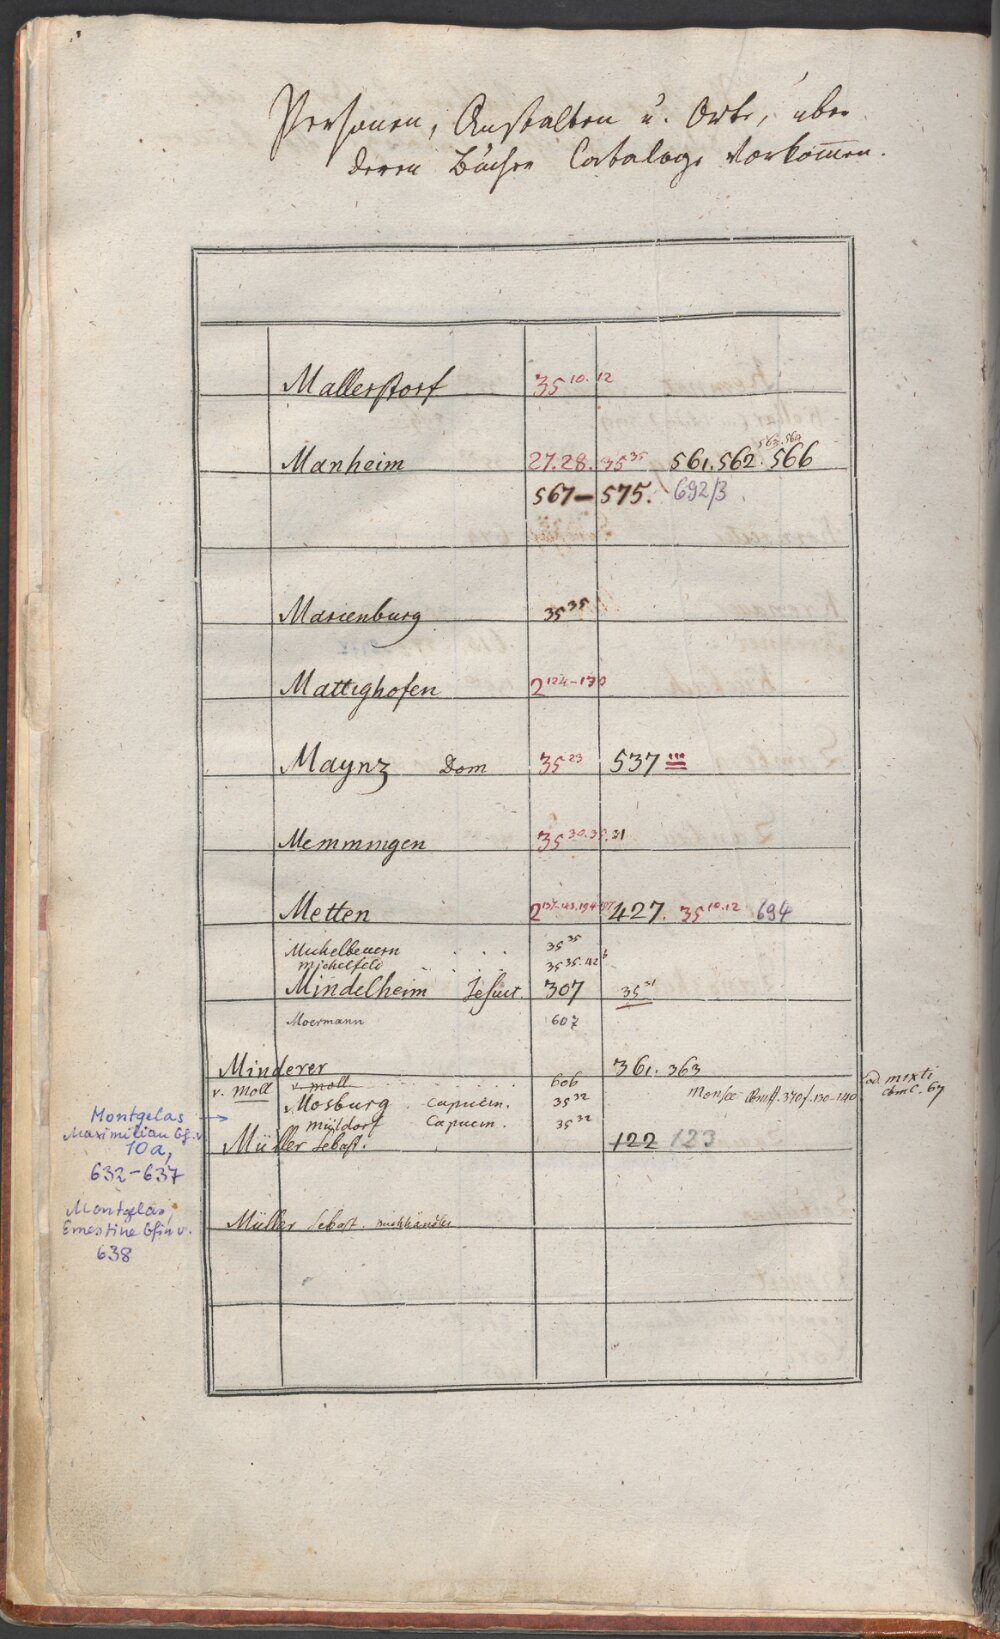 Personen, Anstalten u. Orte, über
deren Bücher Cataloge vorkom̅en.
Mallerstorf 35 10.12
Manheim 27.28. 35 35 561.562. 563.564 566
567–575. 692/3.
Marienburg 35 35
Mattighofen 2 124–130
Maynz Dom 35 23 537
Memmingen 35 30.35.31
Metten 2 427. 35 10.12 694
Michelbeuern . . . 35 35
Michelfeld . . . 35 35.
Mindelheim Jesuit. 307 35 31
Moermann 607
Minderer 361. 363
v. Moll v. Moll . . . . . 606
Mosburg Capucin. 35 32 Monsee Cbm 370 f. 130–140 ad. mixti
Cbm C. 67
Müldorf Capucin. 35 32
Müller Sebast. 122 123
Müller Sebast. Buchhändler
Montgelas →
Maximilian Gf. v.
10a,
632–637
Montgelas,
Ernestine Gfin v.
638